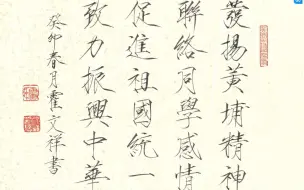 發揚黃埔精神
聯絡同學感情
促進祖國統一
致力振興中華
癸卯春月霍文祥書